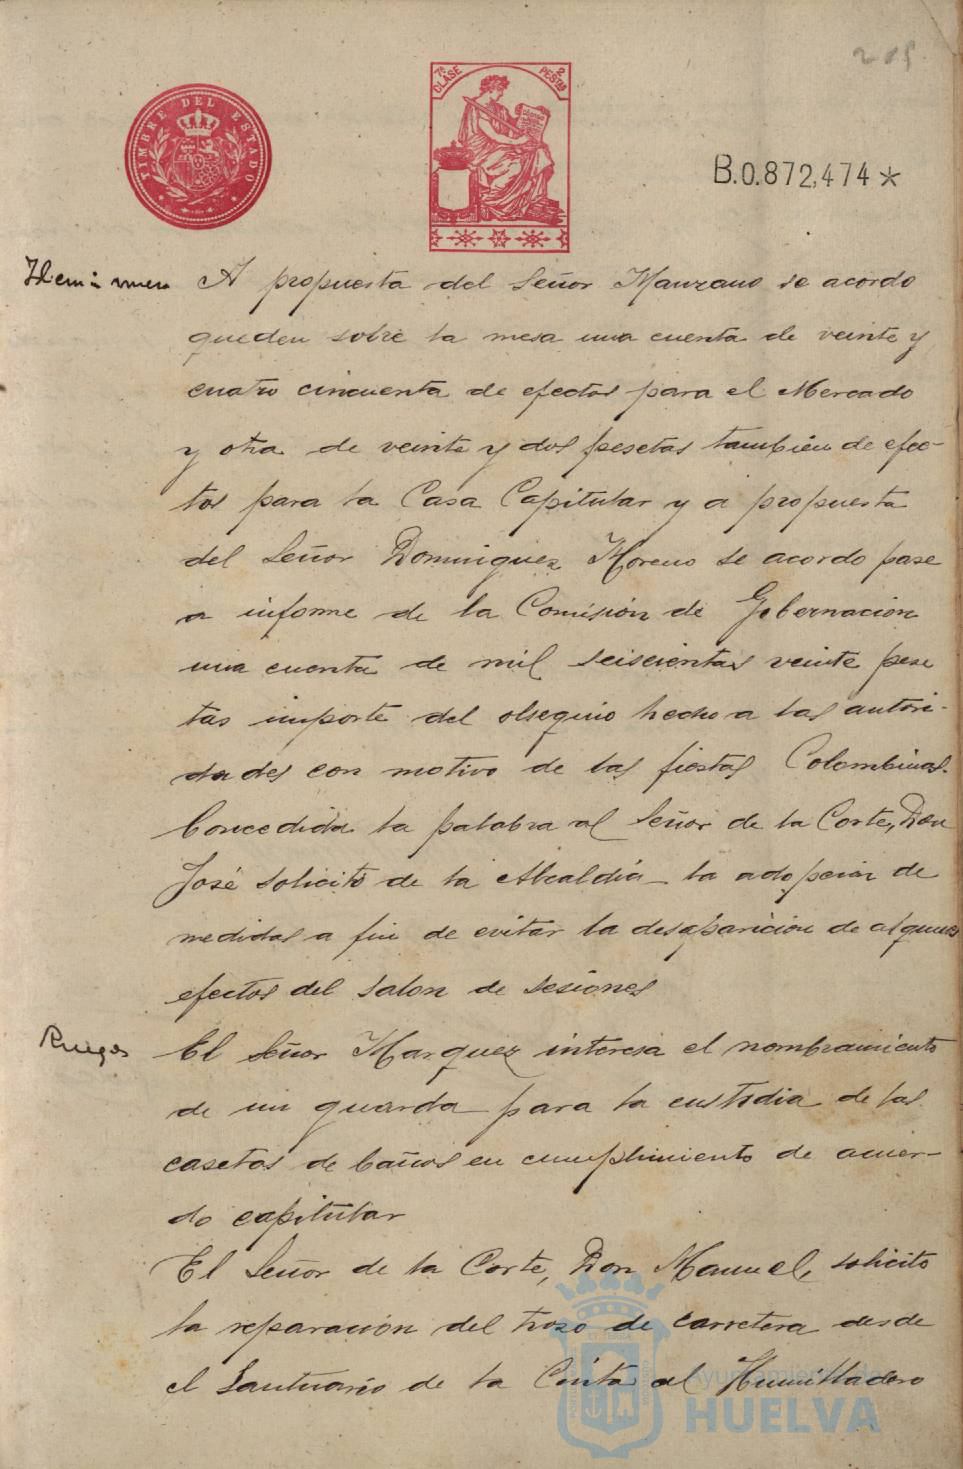 205
TIMBRE DEL ESTADO
7ª CLASE
2 PESTAS
B.0.872,474*
A propuesta del Señor Manzano se acordo
queden sobre la mesa una cuenta de veinte y
cuatro cincuenta de efectos para el Mercado
y otra de veinte y dos pesetas tambien de efec-
tos para la Casa Capitular y a propuesta
del Señor Dominguez Moreno se acordo pase
a informe de la Comisión de Gobernacion
una cuenta de mil seiscientas veinte pese
tas importe del obsequio hecho a las autori-
dades con motivo de las fiestas Colombinas.
Concedida la palabra al Señor de la Corte, Don
José solicito de la Alcaldía la adopcion de
medidas a fin de evitar la desaparicion de algunos
efectos del salon de sesiones
Ruegos
El Señor Marquez interesa el nombramiento
de un guarda para la custodia de las
casetas de baños en cumplimiento de acuer-
do capitular
El Señor de la Corte, Don Manuel, solicito
la reparacion del trozo de carretera desde
el Santuario de la Cinta al Humilladero
Ayuntamiento de
HUELVA